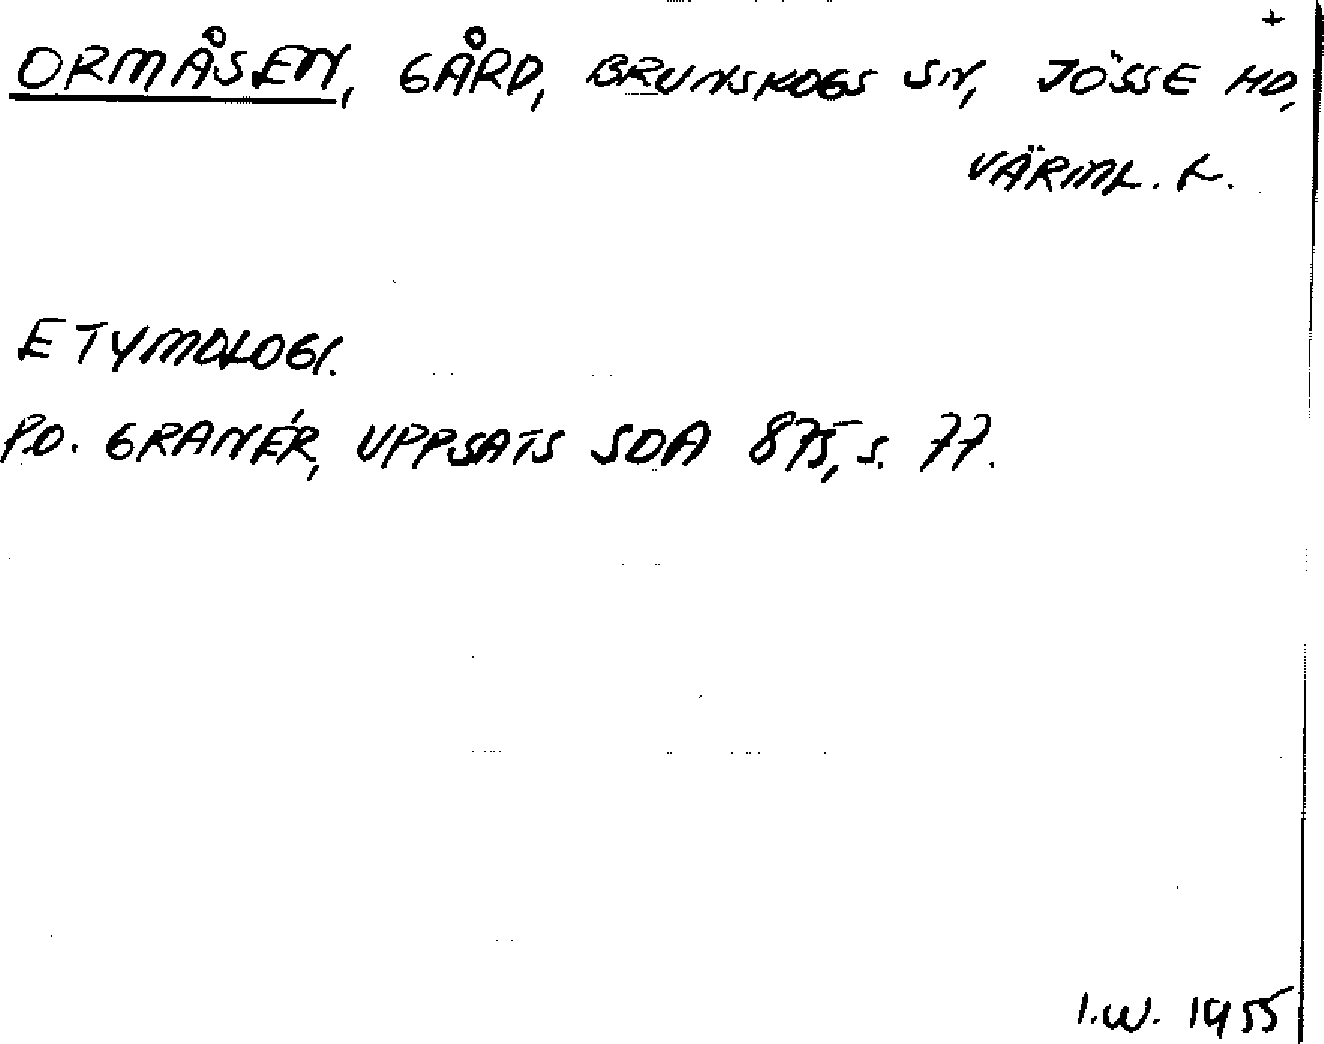 +
ORMÅSEN, GÅRD, BRUNSKOGS SN, JÖSSE HD,
VÄRML. L.
ETYMOLOGI.
P.O. GRANÉR, UPPSATS SOA 875, S. 77.
I.W. 1955